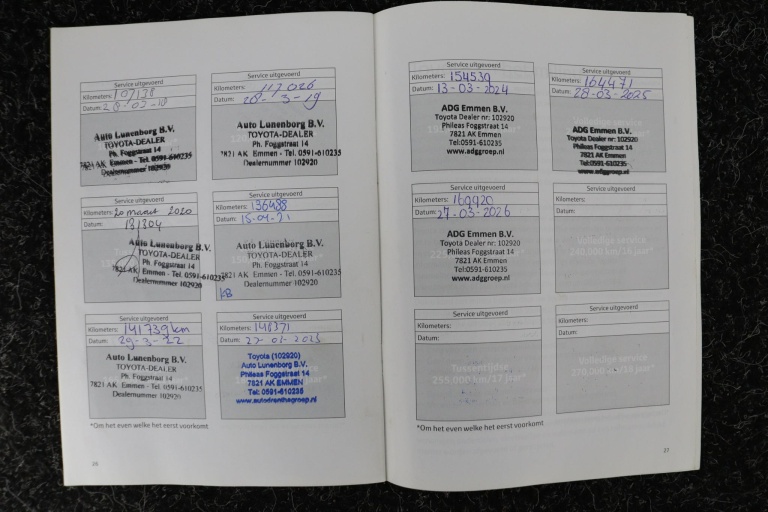 Service uitgevoerd
Kilometers: 107138
Datum: 28-03-18
Auto Lunenborg B.V.
TOYOTA-DEALER
Ph. Foggstraat 14
7821 AK Emmen - Tel. 0591-610235
Dealernummer 102920
Service uitgevoerd
Kilometers: 117026
Datum: 20-3-19
Auto Lunenborg B.V.
TOYOTA-DEALER
Ph. Foggstraat 14
7821 AK Emmen - Tel. 0591-610235
Dealernummer 102920
Service uitgevoerd
Kilometers: 20 maart 2020
Datum: 131304
Auto Lunenborg B.V.
TOYOTA-DEALER
Ph. Foggstraat 14
7821 AK Emmen - Tel. 0591-610235
Dealernummer 102920
Service uitgevoerd
Kilometers: 136488
Datum: 15-04-21
Auto Lunenborg B.V.
TOYOTA-DEALER
Ph. Foggstraat 14
7821 AK Emmen - Tel. 0591-610235
Dealernummer 102920
KB
Service uitgevoerd
Kilometers: 141739 km
Datum: 29-3-22
Auto Lunenborg B.V.
TOYOTA-DEALER
Ph. Foggstraat 14
7821 AK Emmen - Tel. 0591-610235
Dealernummer 102920
Service uitgevoerd
Kilometers: 148371
Datum:
Toyota (102920)
Auto Lunenborg B.V.
Phileas Foggstraat 14
7821 AK EMMEN
Tel: 0591-610235
www.autodrenthegroep.nl
*Om het even welke het eerst voorkomt
26
Service uitgevoerd
Kilometers: 154539
Datum: 13-03-2024
ADG Emmen B.V.
Toyota Dealer nr: 102920
Phileas Foggstraat 14
7821 AK Emmen
Tel:0591-610235
www.adggroep.nl
Service uitgevoerd
Kilometers: 164471
Datum: 28-03-2025
Volledige service
ADG Emmen B.V.
Toyota Dealer nr: 102920
Phileas Foggstraat 14
7821 AK Emmen
Tel:0591-610235
www.adggroep.nl
Service uitgevoerd
Kilometers: 169920
Datum: 27-03-2026
ADG Emmen B.V.
Toyota Dealer nr: 102920
Phileas Foggstraat 14
7821 AK Emmen
Tel:0591-610235
www.adggroep.nl
Service uitgevoerd
Kilometers:
Datum:
Volledige service
240.000 km/16 jaar*
Service uitgevoerd
Kilometers:
Datum:
Tussentijdse
255.000 km/17 jaar*
Service uitgevoerd
Kilometers:
Datum:
Volledige service
270.000 km/18 jaar*
*Om het even welke het eerst voorkomt
27